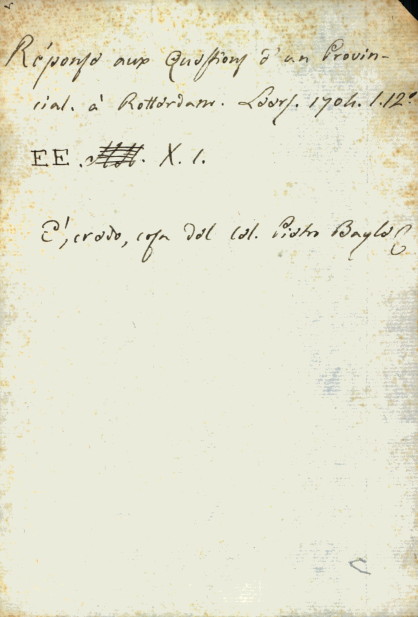 Réponse aux Questions d'un Provin-
cial. à Rotterdam. Leers. 1704. 1.12°
EE. X. 1.
E', credo, cosa del cel. Pietro Bayle